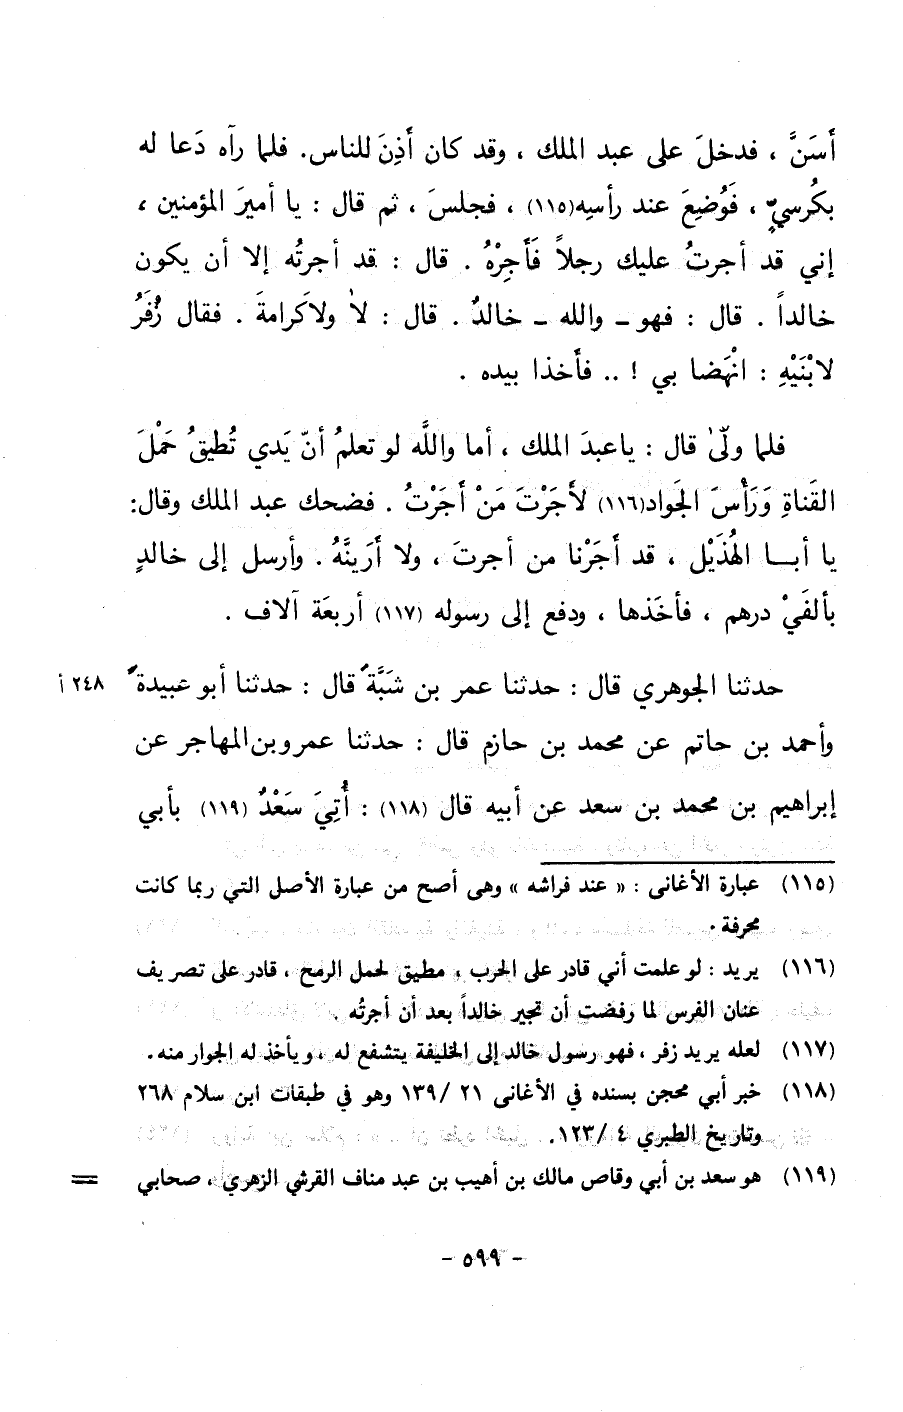 أَسَنَّ ، فدخلَ على عبد الملك ، وقد كان أَذِنَ للناس. فلما رآه دَعا له
بكُرسيٍّ ، فَوُضِعَ عند رأسِه(١١٥) ، فجلسَ ، ثم قال : يا أميرَ المؤمنين ،
إني قد أجرتُ عليك رجلاً فَأَجِرْهُ . قال : قد أجرتُه إلا أن يكون
خالداً . قال : فهو ـ والله ـ خالدٌ . قال : لا ولاكرامةَ . فقال زُفَرُ
لابْنَيْهِ : انْهَضا بي ! .. فأخذا بيده .
فلما ولّى قال : ياعبدَ الملك ، أما واللَّه لو تعلمُ أنّ يَدي تُطيقُ حَمْلَ
القَناةِ وَرَأْسَ الجَواد(١١٦) لأَجَرْتَ مَنْ أَجَرْتُ . فضحك عبد الملك وقال:
يا أبـا الهُذَيْل ، قد أَجَرْنا من أجرتَ ، ولا أَرَينَّهُ . وأرسل إلى خالدٍ
بألفَيْ درهم ، فأخَذها ، ودفع إلى رسوله (١١٧) أربعَة آلاف .
حدثنا الجوهري قال : حدثنا عمر بن شَبَّة قال : حدثنا أبو عبيدة ٢٤٨ أ
وأحمد بن حاتم عن محمد بن حازم قال : حدثنا عمروبن المهاجر عن
إبراهيم بن محمد بن سعد عن أبيه قال (١١٨) : أُتِيَ سَعْدٌ (١١٩) بأبي
(١١٥) عبارة الأغانى : « عند فراشه » وهى أصح من عبارة الأصل التي ربما كانت
محرفة .
(١١٦) يريد : لو علمت أني قادر على الحرب ، مطيق لحمل الرمح ، قادر على تصريف
عنان الفرس لما رفضت أن تجير خالداً بعد أن أجرتُه .
(١١٧) لعله يريد زفر ، فهو رسول خالد إلى الخليفة يتشفع له ، ويأخذ له الجوار منه .
(١١٨) خبر أبي محجن بسنده في الأغانى ٢١ /١٣٩ وهو في طبقات ابن سلام ٢٦٨
وتاريخ الطبري ٤ /١٢٣.
(١١٩) هو سعد بن أبي وقاص مالك بن أهيب بن عبد مناف القرشي الزهري ، صحابي =
- ٥٩٩ -